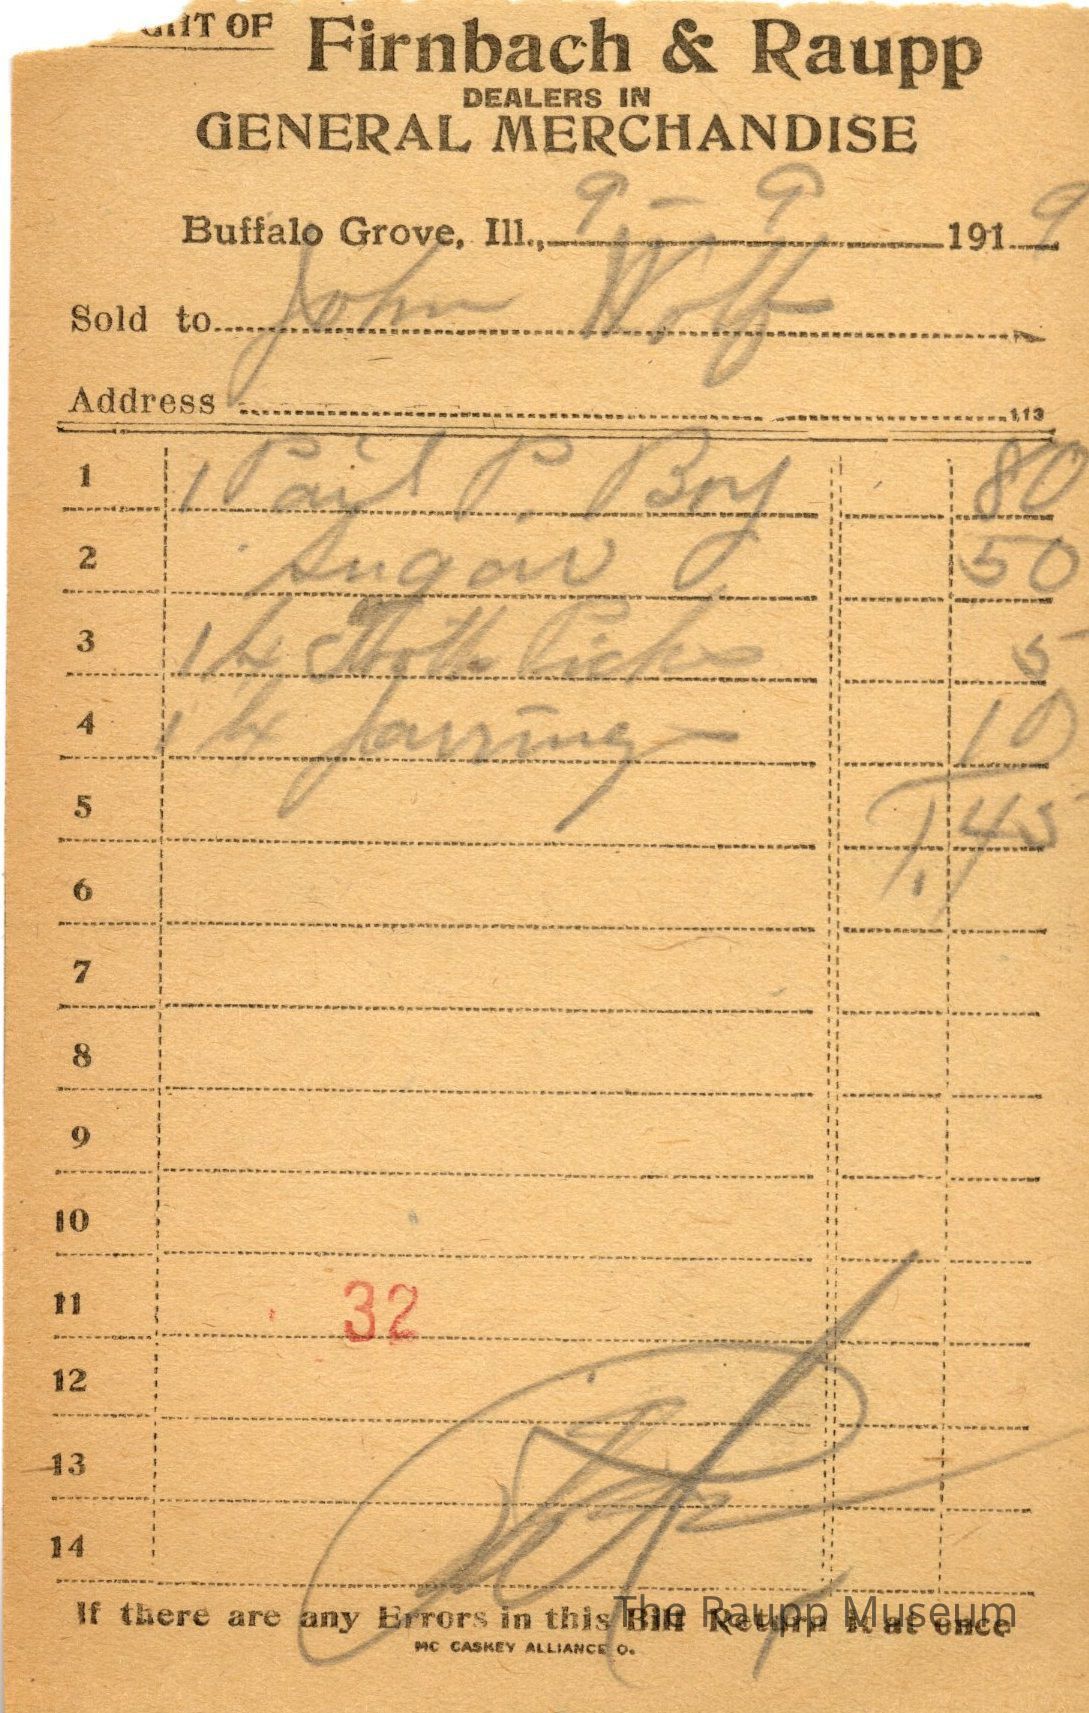 GHT OF Firnbach & Raupp
DEALERS IN
GENERAL MERCHANDISE
Buffalo Grove, Ill., 9 - 9 1919
Sold to John Wolf
Address 113
1 1 Pail P. Boy 80
2 Sugar 50
3 1 bx Tooth Picks 5
4 1 bx Jar rings 10
5 1.45
6
7
8
9
10
11 32
12
13
14
If there are any Errors in this Bill Return it at once
The Raupp Museum
MC CASKEY ALLIANCE O.